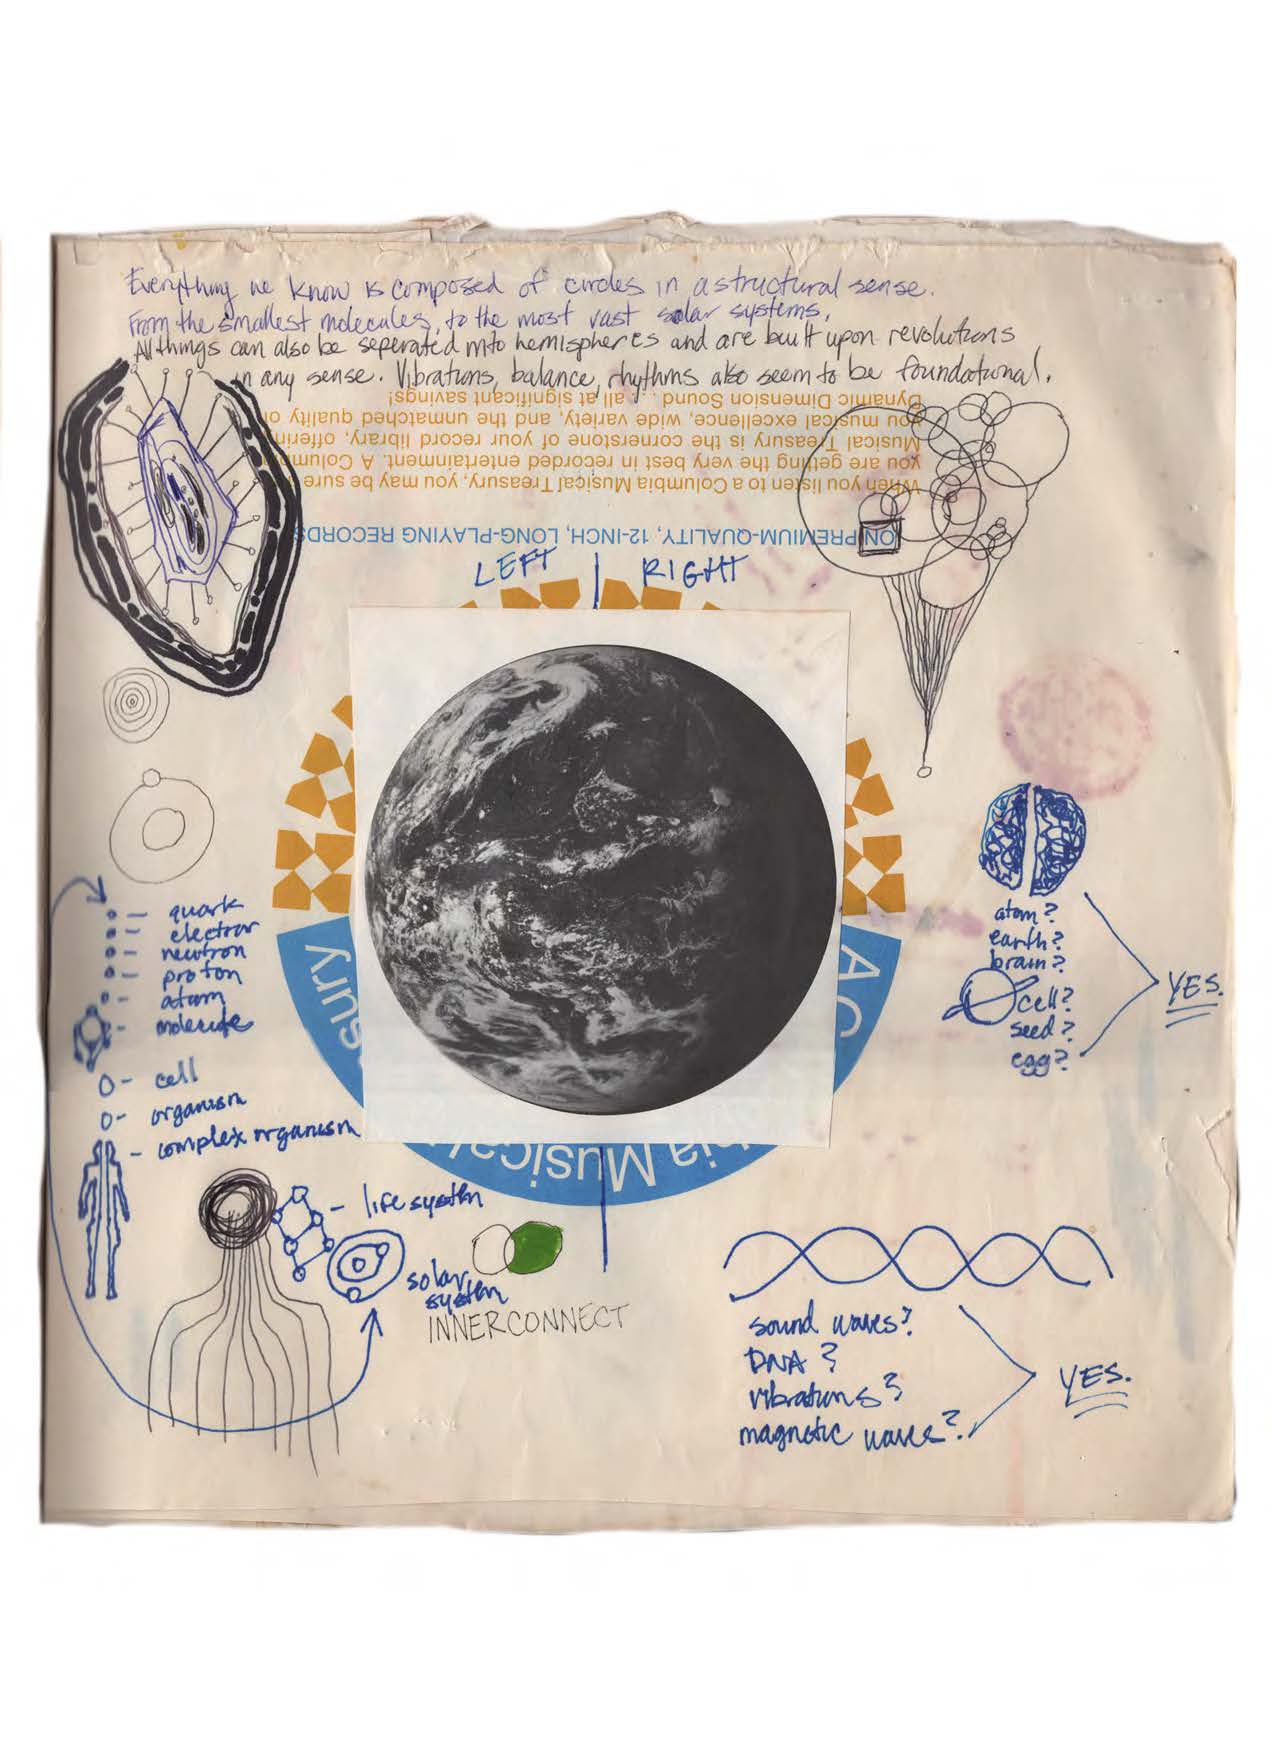 Everything we know is composed of circles in a structural sense.
From the smallest molecules, to the most vast solar systems.
All things can also be seperated into hemispheres and are built upon revolutions
in any sense. Vibrations, balance, rhythms also seem to be foundational.
Dynamic Dimension Sound . . . all at significant savings!
you musical excellence, wide variety, and the unmatched quality of
Musical Treasury is the cornerstone of your record library, offerin
you are getting the very best in recorded entertainment. A Columb
When you listen to a Columbia Musical Treasury, you may be sure
ON PREMIUM-QUALITY, 12-INCH, LONG-PLAYING RECORDS
LEFT | RIGHT
quark
electron
neutron
proton
atom
molecule
cell
organism
complex organism
life system
solar
system
INNERCONNECT
A C
bia Musical
sury
atom?
earth?
brain?
cell?
seed?
egg?
YES.
sound waves?
DNA?
vibrations?
magnetic waves?
YES.